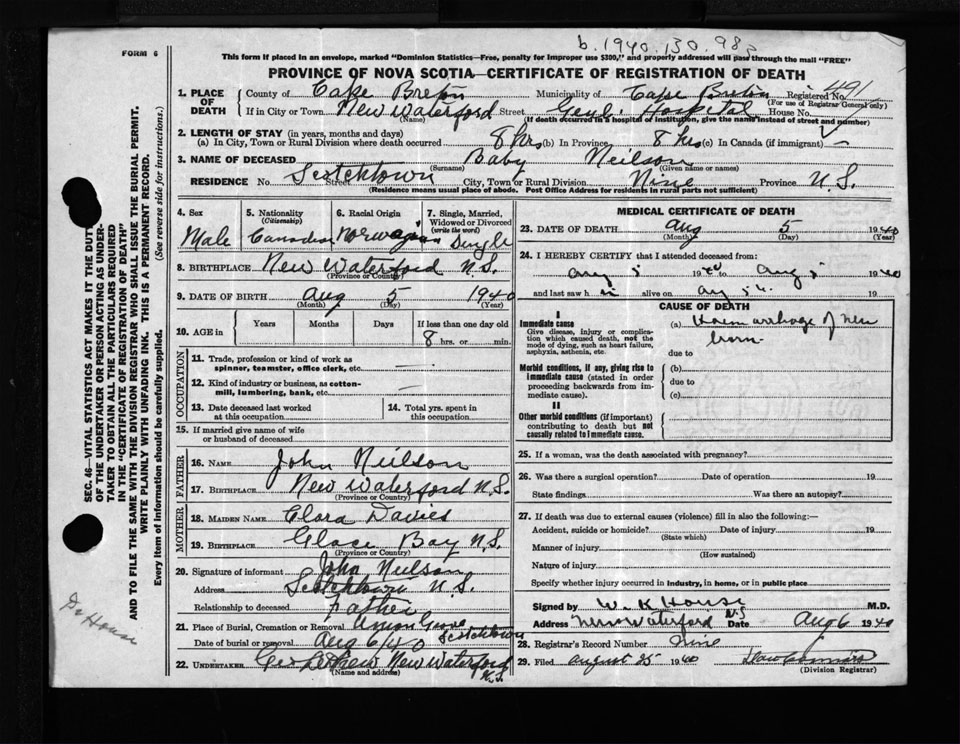 b. 1940. 130. 983
FORM 6
This form if placed in an envelope, marked "Dominion Statistics—Free, penalty for improper use $300," and properly addressed will pass through the mail "FREE"
PROVINCE OF NOVA SCOTIA—CERTIFICATE OF REGISTRATION OF DEATH
1. PLACE OF DEATH County of Cape Breton Municipality of Cape Breton Registered No. 491
(For use of Registrar General only)
If in City or Town New Waterford Street Genl. Hospital House No.
(Name) (If death occurred in a hospital or institution, give the name instead of street and number)
2. LENGTH OF STAY (in years, months and days)
(a) In City, Town or Rural Division where death occurred 8 hrs (b) In Province 8 hrs (c) In Canada (if immigrant) —
3. NAME OF DECEASED Baby Neilson
(Surname) (Given name or names)
RESIDENCE No. Scotchtown Street City, Town or Rural Division Nine Province N.S.
(Residence means usual place of abode. Post Office Address for residents in rural parts not sufficient)
4. Sex Male
5. Nationality (Citizenship) Canadian
6. Racial Origin Norwegian
7. Single, Married, Widowed or Divorced (write the word) Single
8. BIRTHPLACE New Waterford N.S.
(Province or Country)
9. DATE OF BIRTH Aug 5 1940
(Month) (Day) (Year)
10. AGE in Years Months Days If less than one day old
8 hrs. or min.
OCCUPATION
11. Trade, profession or kind of work as spinner, teamster, office clerk, etc. —
12. Kind of industry or business, as cotton-mill, lumbering, bank, etc. —
13. Date deceased last worked at this occupation
14. Total yrs. spent in this occupation
15. If married give name of wife or husband of deceased
FATHER
16. NAME John Neilson
17. BIRTHPLACE New Waterford N.S.
(Province or Country)
MOTHER
18. MAIDEN NAME Clara Davies
19. BIRTHPLACE Glace Bay N.S.
(Province or Country)
20. Signature of informant John Neilson
Address Scotchtown N.S.
Relationship to deceased Father
21. Place of Burial, Cremation or Removal Union Grove Scotchtown
Date of burial or removal Aug 6/40
22. UNDERTAKER New Waterford N.S.
(Name and address)
MEDICAL CERTIFICATE OF DEATH
23. DATE OF DEATH Aug 5 1940
(Month) (Day) (Year)
24. I HEREBY CERTIFY that I attended deceased from:
Aug 5 1940 to Aug 5 1940
and last saw h alive on Aug 5 19
CAUSE OF DEATH
I
Immediate cause
Give disease, injury or complication which caused death, not the mode of dying, such as heart failure, asphyxia, asthenia, etc.
(a) Haemorrhage of new born
due to
Morbid conditions, if any, giving rise to immediate cause (stated in order proceeding backwards from immediate cause).
(b)
due to
(c)
II
Other morbid conditions (if important) contributing to death but not causally related to immediate cause.
25. If a woman, was the death associated with pregnancy?
26. Was there a surgical operation? Date of operation 19
State findings Was there an autopsy?
27. If death was due to external causes (violence) fill in also the following:—
Accident, suicide or homicide? Date of injury 19
(State which)
Manner of injury
(How sustained)
Nature of injury
Specify whether injury occurred in industry, in home, or in public place
Signed by W. K. House M.D.
Address New Waterford N.S Date Aug 6 1940
28. Registrar's Record Number Nine
29. Filed August 25 1940
(Division Registrar)
SEC. 46—VITAL STATISTICS ACT MAKES IT THE DUTY
OF THE UNDERTAKER OR PERSON ACTING AS UNDER-
TAKER TO OBTAIN ALL THE PARTICULARS REQUIRED
IN THE "CERTIFICATE OF REGISTRATION OF DEATH"
AND TO FILE THE SAME WITH THE DIVISION REGISTRAR WHO SHALL ISSUE THE BURIAL PERMIT.
WRITE PLAINLY WITH UNFADING INK. THIS IS A PERMANENT RECORD.
Every item of information should be carefully supplied. (See reverse side for instructions.)
Dr House